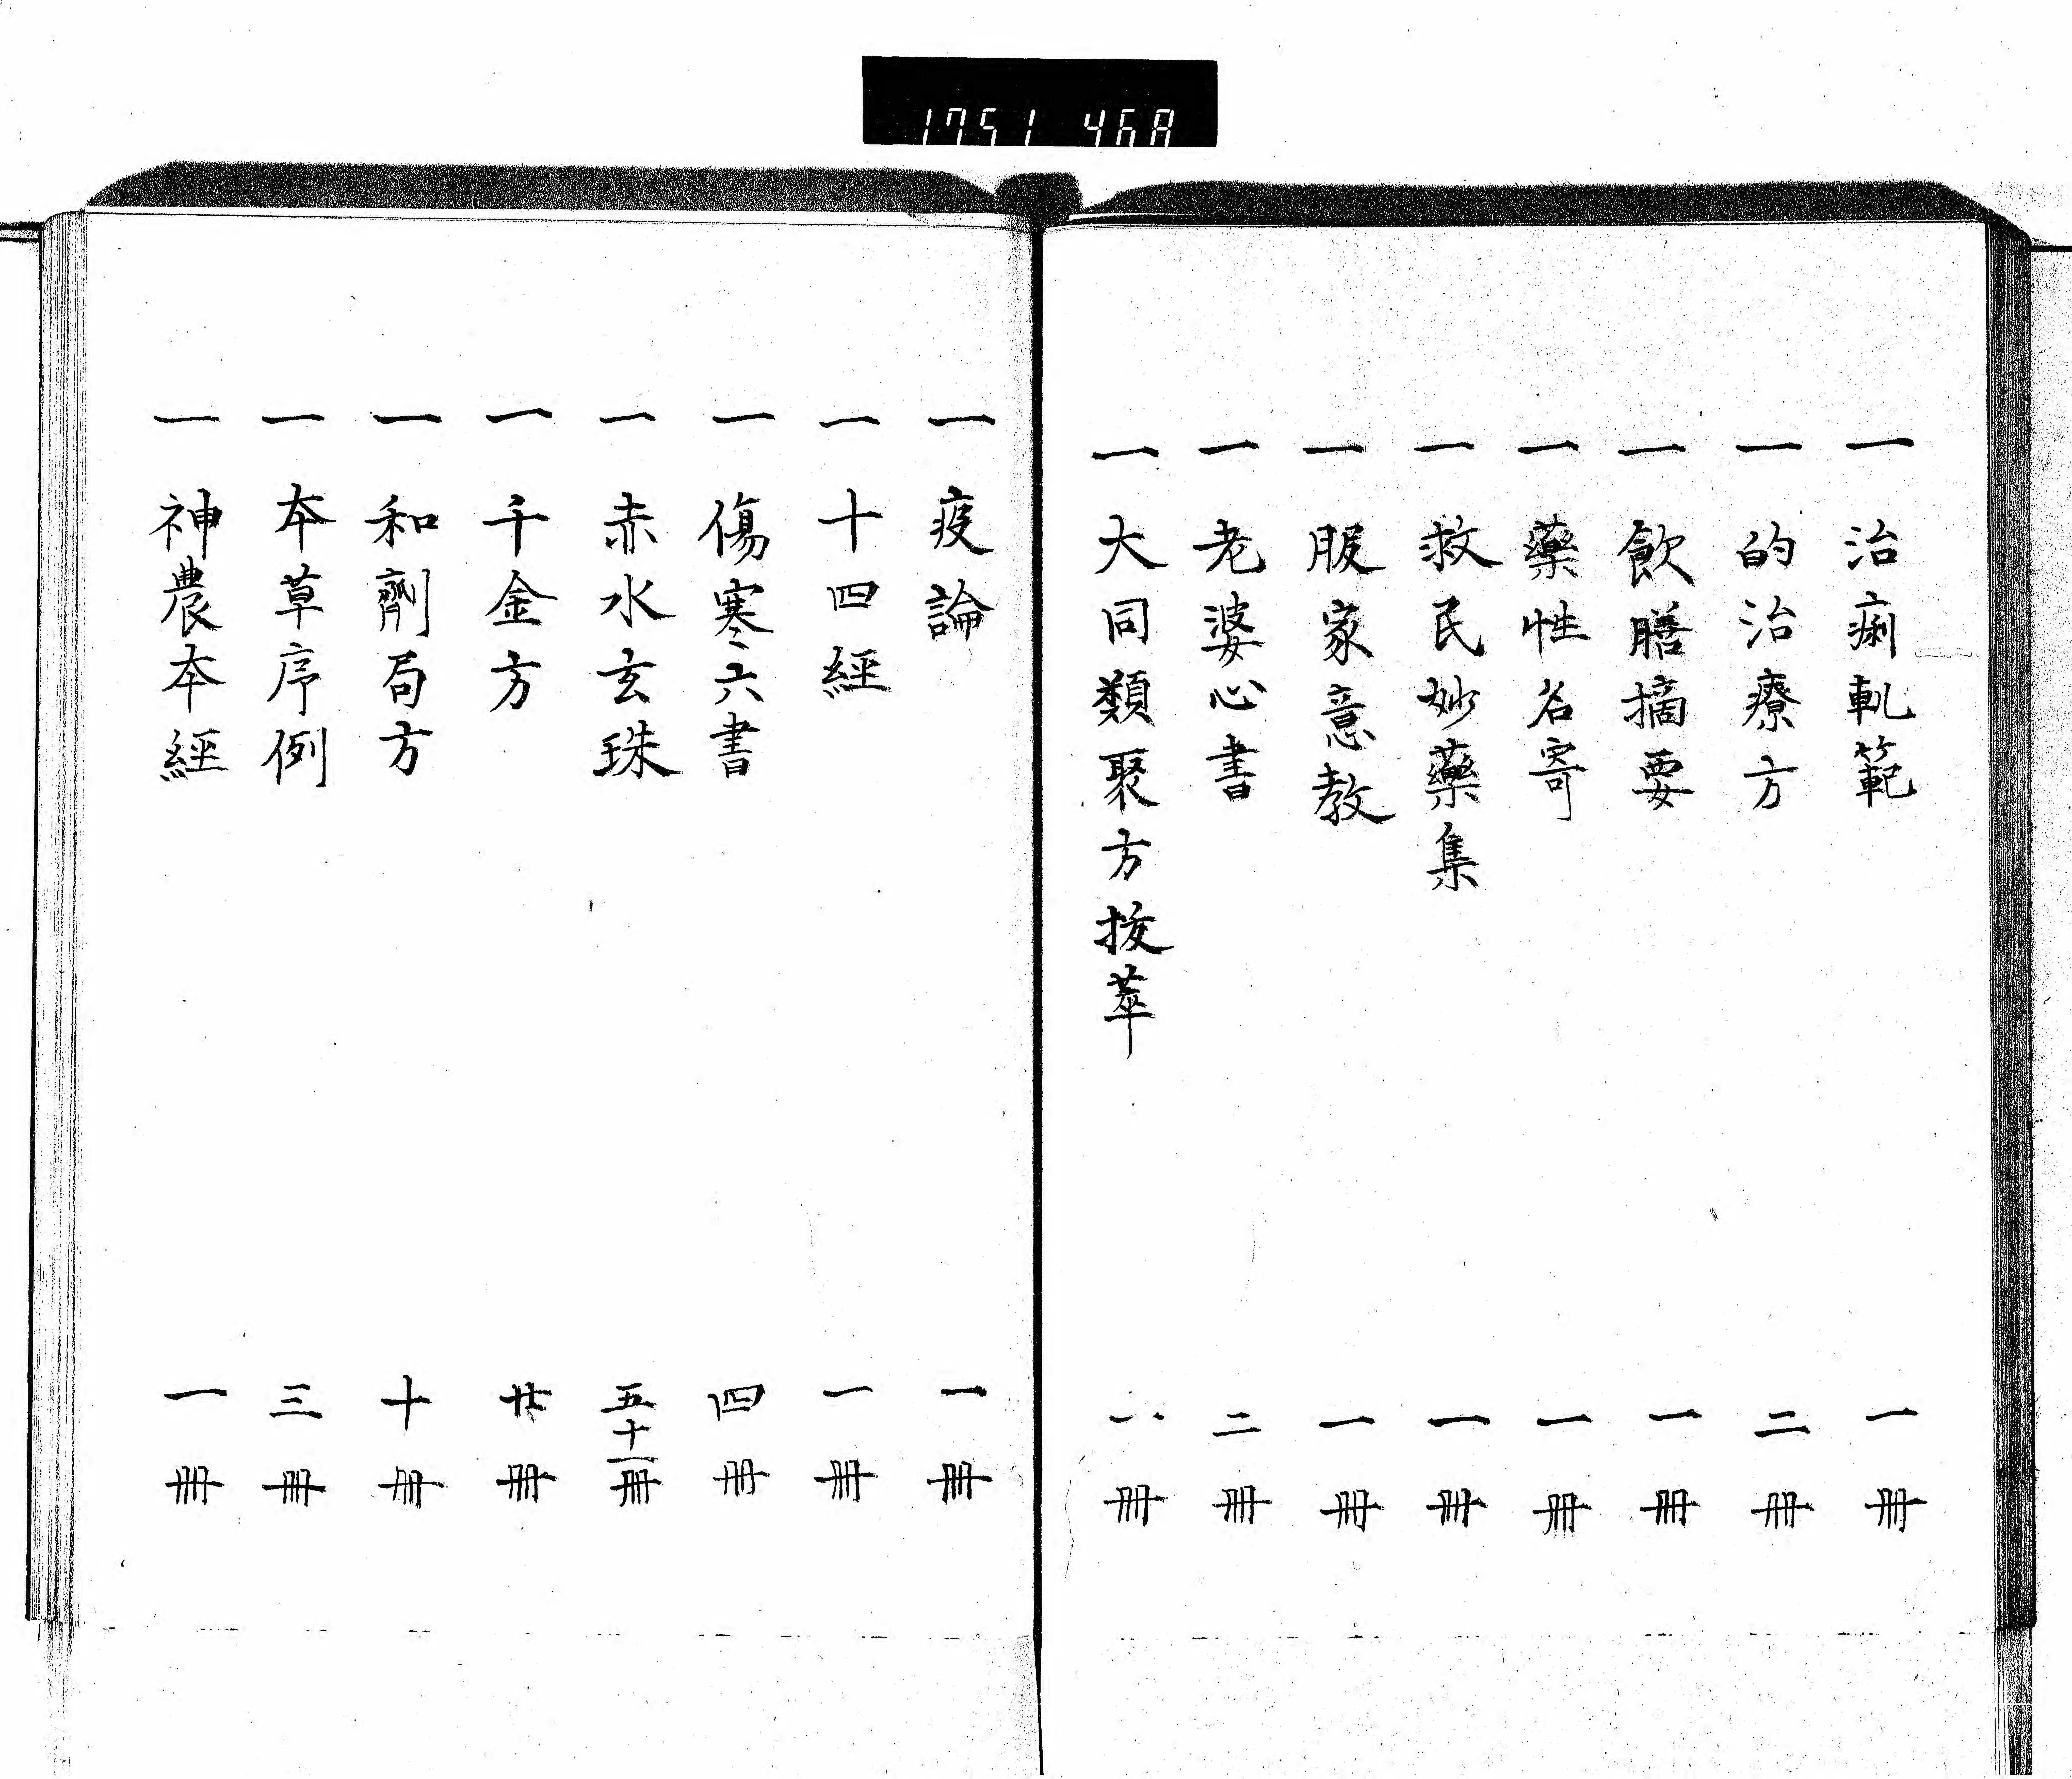 1751 468
一 治痢軋範 一冊
一 的治療方 二冊
一 飲膳摘要 一冊
一 藥性名寄 一冊
一 救民妙藥集 一冊
一 服家意教 一冊
一 老婆心書 二冊
一 大同類聚方拔萃 一冊
一 疫論 一冊
一 十四經 一冊
一 傷寒六書 四冊
一 赤水玄珠 五十一冊
一 千金方 廿冊
一 和劑局方 十冊
一 本草序例 三冊
一 神農本經 一冊